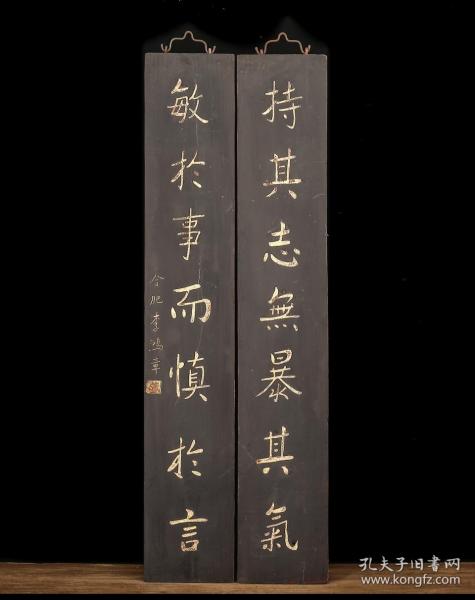 持其志無暴其氣
敏於事而慎於言
合肥李鴻章
孔夫子旧书网